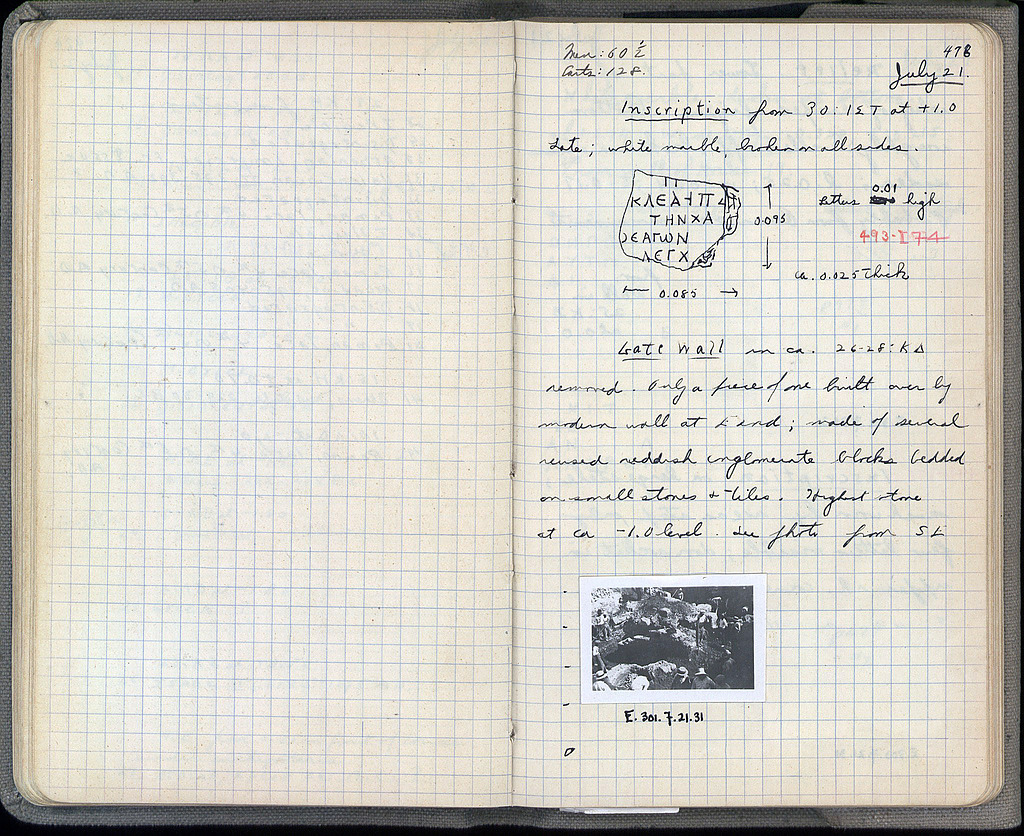 478
Men: 60 ½
Carts: 128.
July 21.
Inscription from 30:ΙΣΤ at +1.0
Late; white marble, broken on all sides.
ΚΛΕΑ
ΤΗΝΧΑ
ΕΑΓΩΝ
ΛΕΓΧ
0.095
0.085
Letters 0.01 high
493-I 74
ca. 0.025 thick
Late Wall in ca. 26-28:ΚΔ
removed. Only a piece of one built over by
modern wall at E end; made of several
reused reddish conglomerate blocks bedded
on small stones + tiles. Highest stone
at ca -1.0 level. See photo from SE
E. 301. 7.21.31